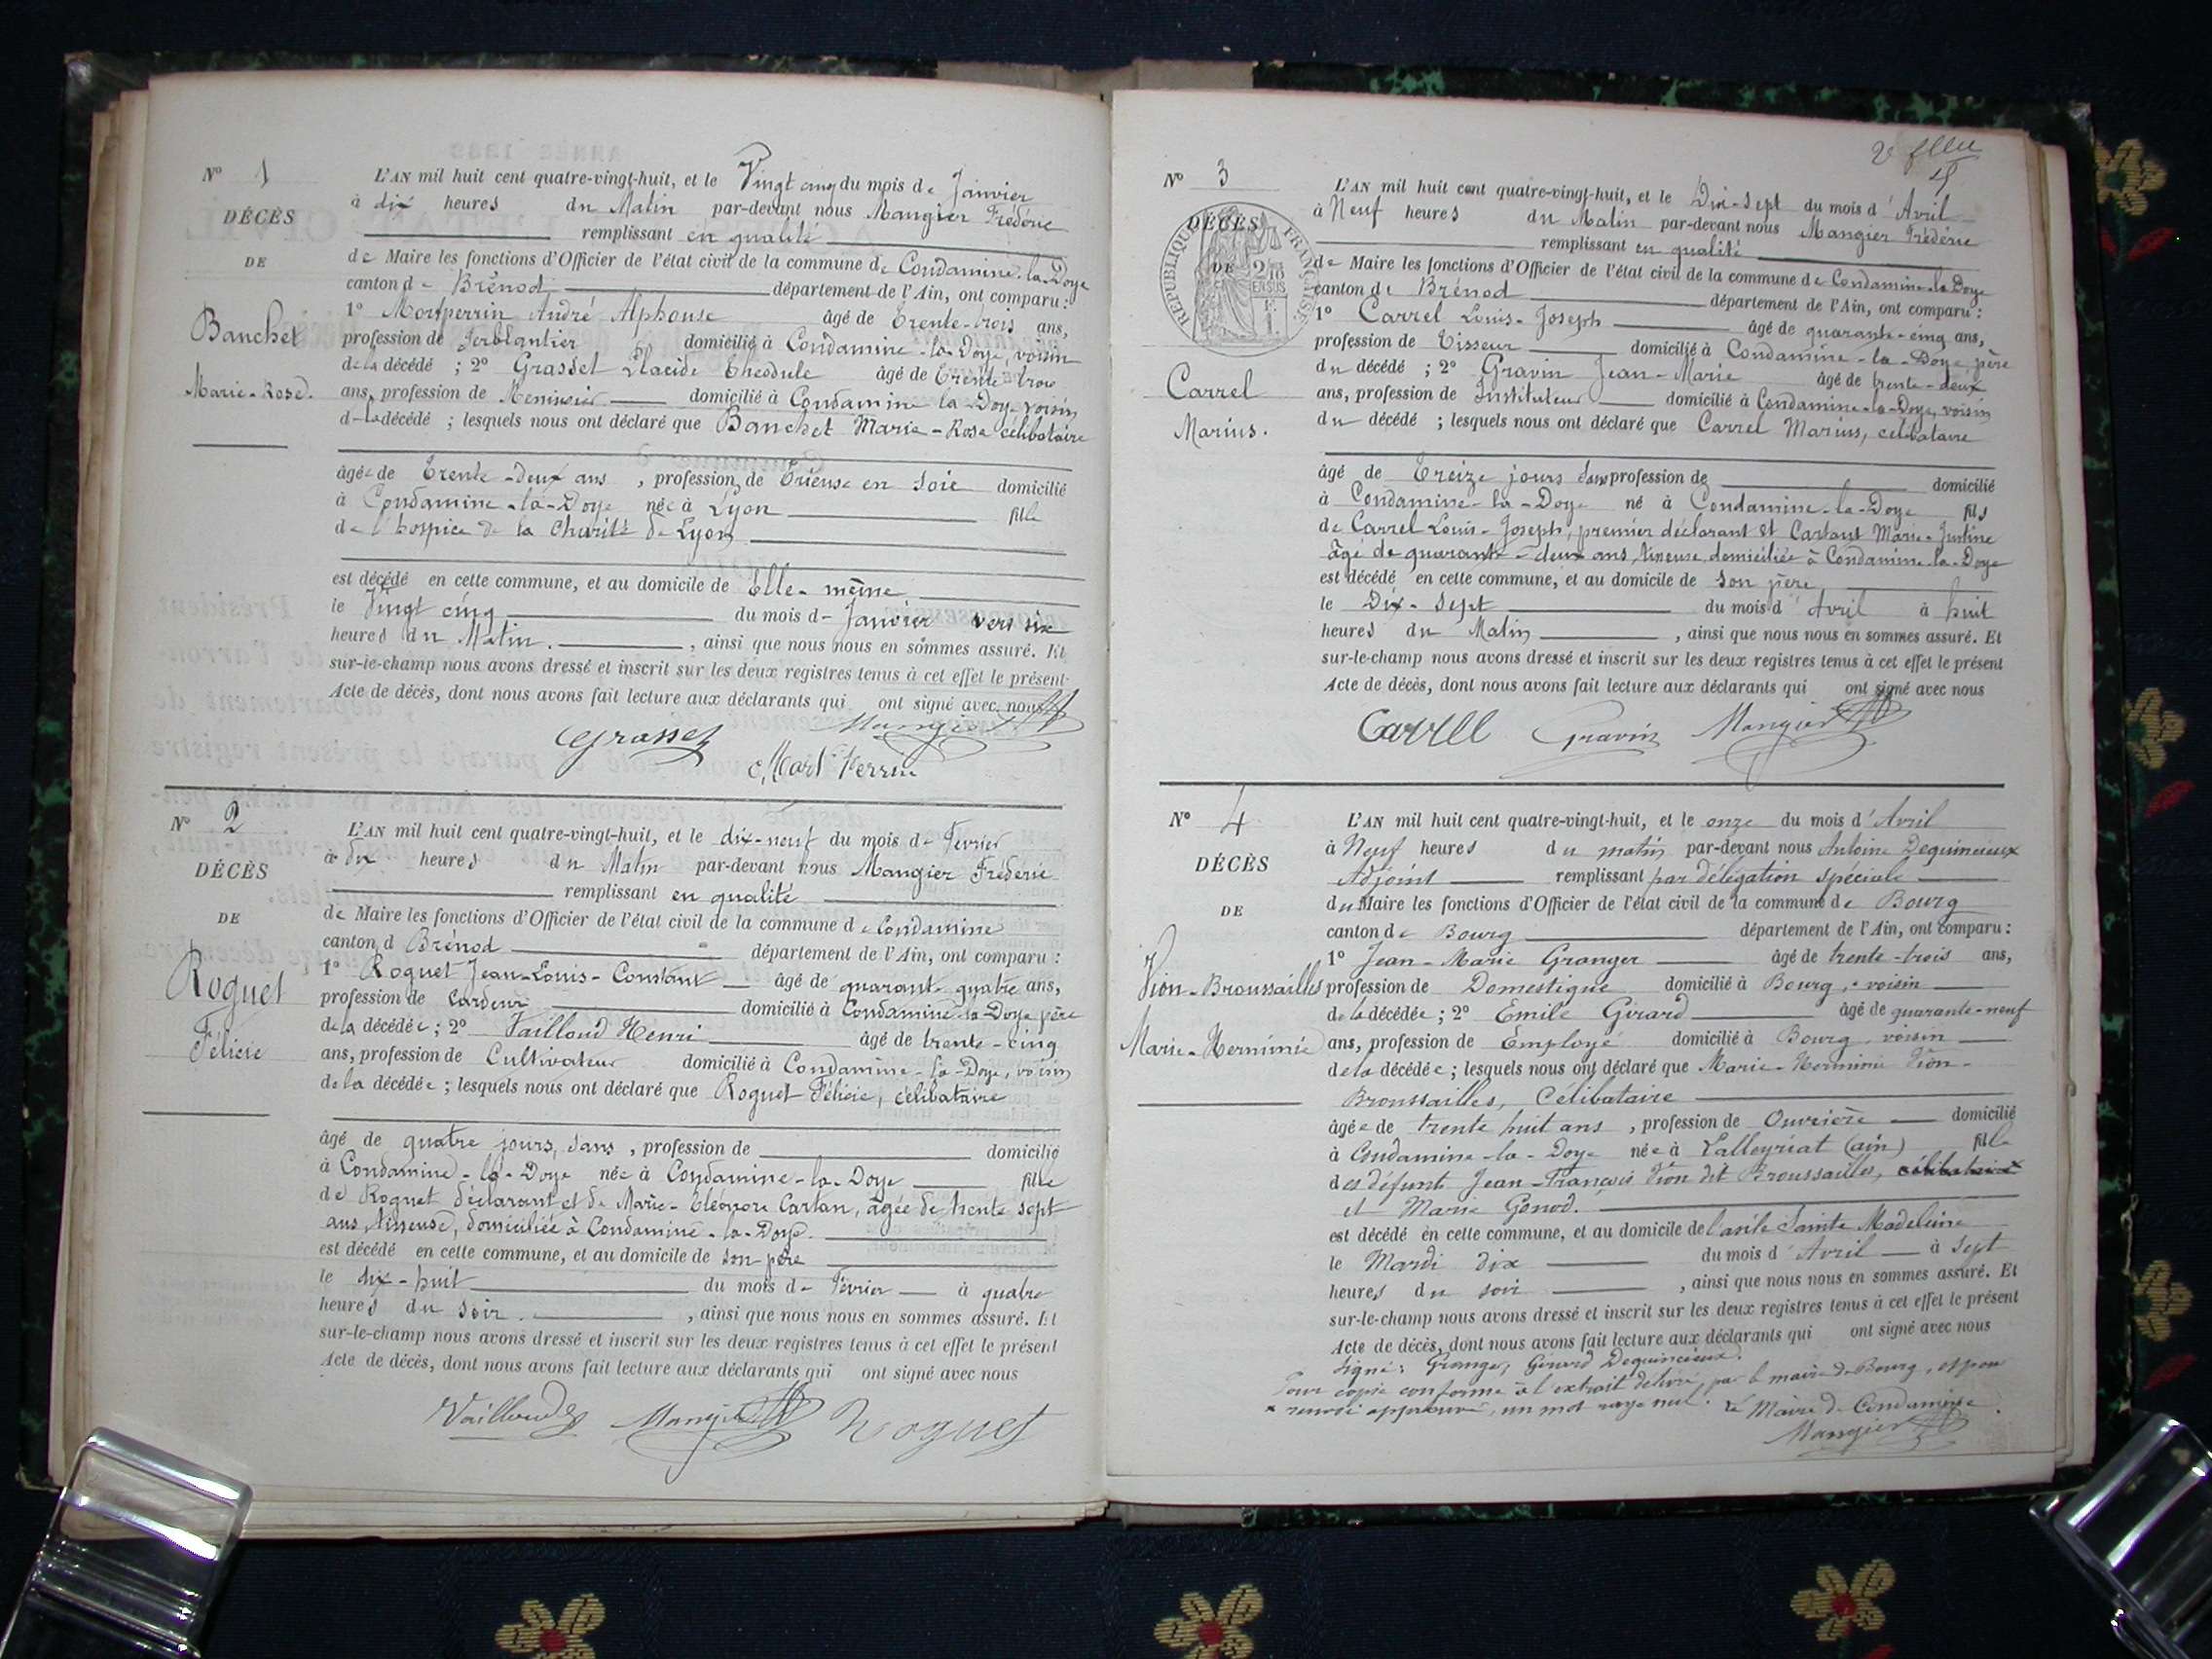 N° 1
DÉCÈS
DE
Banchet
Marie-Rose.
L'AN mil huit cent quatre-vingt-huit, et le Vingt cinq du mois de Janvier
à dix heures du Matin par-devant nous Mangier Frédéric
remplissant en qualité
de Maire les fonctions d'Officier de l'état civil de la commune de Condamine-la-Doye
canton de Brénod département de l'Ain, ont comparu :
1° Montperrin André Alphonse âgé de trente-trois ans,
profession de ferblantier domicilié à Condamine-la-Doye, voisin
de la décédé ; 2° Grasset Placide Théodule âgé de trente trois
ans, profession de Menuisier domicilié à Condamine la Doye voisin
d-la décédé ; lesquels nous ont déclaré que Banchet Marie-Rose célibataire
âgée de trente-deux ans , profession de trieuse en soie domicilié
à Condamine-la-Doye née à Lyon fille
de l'hospice de la Charité de Lyon
est décédé en cette commune, et au domicile de Elle-même
le Vingt cinq du mois d- Janvier vers six
heures du Matin. , ainsi que nous nous en sommes assuré. Et
sur-le-champ nous avons dressé et inscrit sur les deux registres tenus à cet effet le présent
Acte de décès, dont nous avons fait lecture aux déclarants qui ont signé avec nous
Grasset Mangier
Montperrin
N° 2
DÉCÈS
DE
Roguet
Félicie
L'AN mil huit cent quatre-vingt-huit, et le dix-neuf du mois de Février
à dix heures du Matin par-devant nous Mangier Frédéric
remplissant en qualité
de Maire les fonctions d'Officier de l'état civil de la commune de Condamine
canton d Brénod département de l'Ain, ont comparu :
1° Roguet Jean-Louis-Constant âgé de quarante quatre ans,
profession de Cardeur domicilié à Condamine-la-Doye père
de la décédée ; 2° Vailloud Henri âgé de trente-cinq
ans, profession de Cultivateur domicilié à Condamine-la-Doye, voisin
de la décédée ; lesquels nous ont déclaré que Roguet Félicie, célibataire
âgé de quatre jours, sans , profession de domicilié
à Condamine-la-Doye née à Condamine-la-Doye fille
de Roguet déclarant et de Marie-Eléonore Cartan, âgée de trente sept
ans, tisseuse, domiciliée à Condamine-la-Doye.
est décédé en cette commune, et au domicile de son père
le dix-huit du mois de Février à quatre
heures du soir. , ainsi que nous nous en sommes assuré. Et
sur-le-champ nous avons dressé et inscrit sur les deux registres tenus à cet effet le présent
Acte de décès, dont nous avons fait lecture aux déclarants qui ont signé avec nous
Vailloud Mangier Roguet
2e
N° 3
DÉCÈS
DE
RÉPUBLIQUE FRANÇAISE
Carrel
Marius.
L'AN mil huit cent quatre-vingt-huit, et le Dix-sept du mois d'Avril
à Neuf heures du Matin par-devant nous Mangier Frédéric
remplissant en qualité
de Maire les fonctions d'Officier de l'état civil de la commune de Condamine-la-Doye
canton de Brénod département de l'Ain, ont comparu :
1° Carrel Louis-Joseph âgé de quarante-cinq ans,
profession de Tisseur domicilié à Condamine-la-Doye père
du décédé ; 2° Gravin Jean-Marie âgé de trente-deux
ans, profession de Instituteur domicilié à Condamine-la-Doye, voisin
du décédé ; lesquels nous ont déclaré que Carrel Marius, célibataire
âgé de Treize jours sans profession de domicilié
à Condamine-la-Doye né à Condamine-la-Doye fils
de Carrel Louis-Joseph, premier déclarant et Cartant Marie-Justine
âgé de quarante-deux ans, tisseuse, domiciliée à Condamine-la-Doye
est décédé en cette commune, et au domicile de son père
le Dix-sept du mois d'Avril à huit
heures du Matin , ainsi que nous nous en sommes assuré. Et
sur-le-champ nous avons dressé et inscrit sur les deux registres tenus à cet effet le présent
Acte de décès, dont nous avons fait lecture aux déclarants qui ont signé avec nous
Carrel Gravin Mangier
N° 4
DÉCÈS
DE
Vion-Broussailles
Marie-Herminie
L'AN mil huit cent quatre-vingt-huit, et le onze du mois d'Avril
à Neuf heures du matin par-devant nous Antoine Dequincieux
Adjoint remplissant par délégation spéciale
du Maire les fonctions d'Officier de l'état civil de la commune de Bourg
canton de Bourg département de l'Ain, ont comparu :
1° Jean-Marie Granger âgé de trente-trois ans,
profession de Domestique domicilié à Bourg, voisin
de la décédée ; 2° Emile Girard âgé de quarante-neuf
ans, profession de Employé domicilié à Bourg, voisin
de la décédée ; lesquels nous ont déclaré que Marie-Herminie Vion-
Broussailles, Célibataire
âgée de trente huit ans , profession de Ouvrière domicilié
à Condamine-la-Doye née à Lalleyriat (ain) fille
des défunts Jean-François Vion dit Broussailles, célibataire
et Marie Genod.
est décédé en cette commune, et au domicile de l'asile Sainte Madeleine
le Mardi dix du mois d'Avril à sept
heures du soir , ainsi que nous nous en sommes assuré. Et
sur-le-champ nous avons dressé et inscrit sur les deux registres tenus à cet effet le présent
Acte de décès, dont nous avons fait lecture aux déclarants qui ont signé avec nous
Signé : Granger, Girard Dequincieux.
Pour copie conforme à l'extrait délivré par le maire de Bourg,
renvoi approuvé, un mot rayé nul. Le Maire de Condamine
Mangier